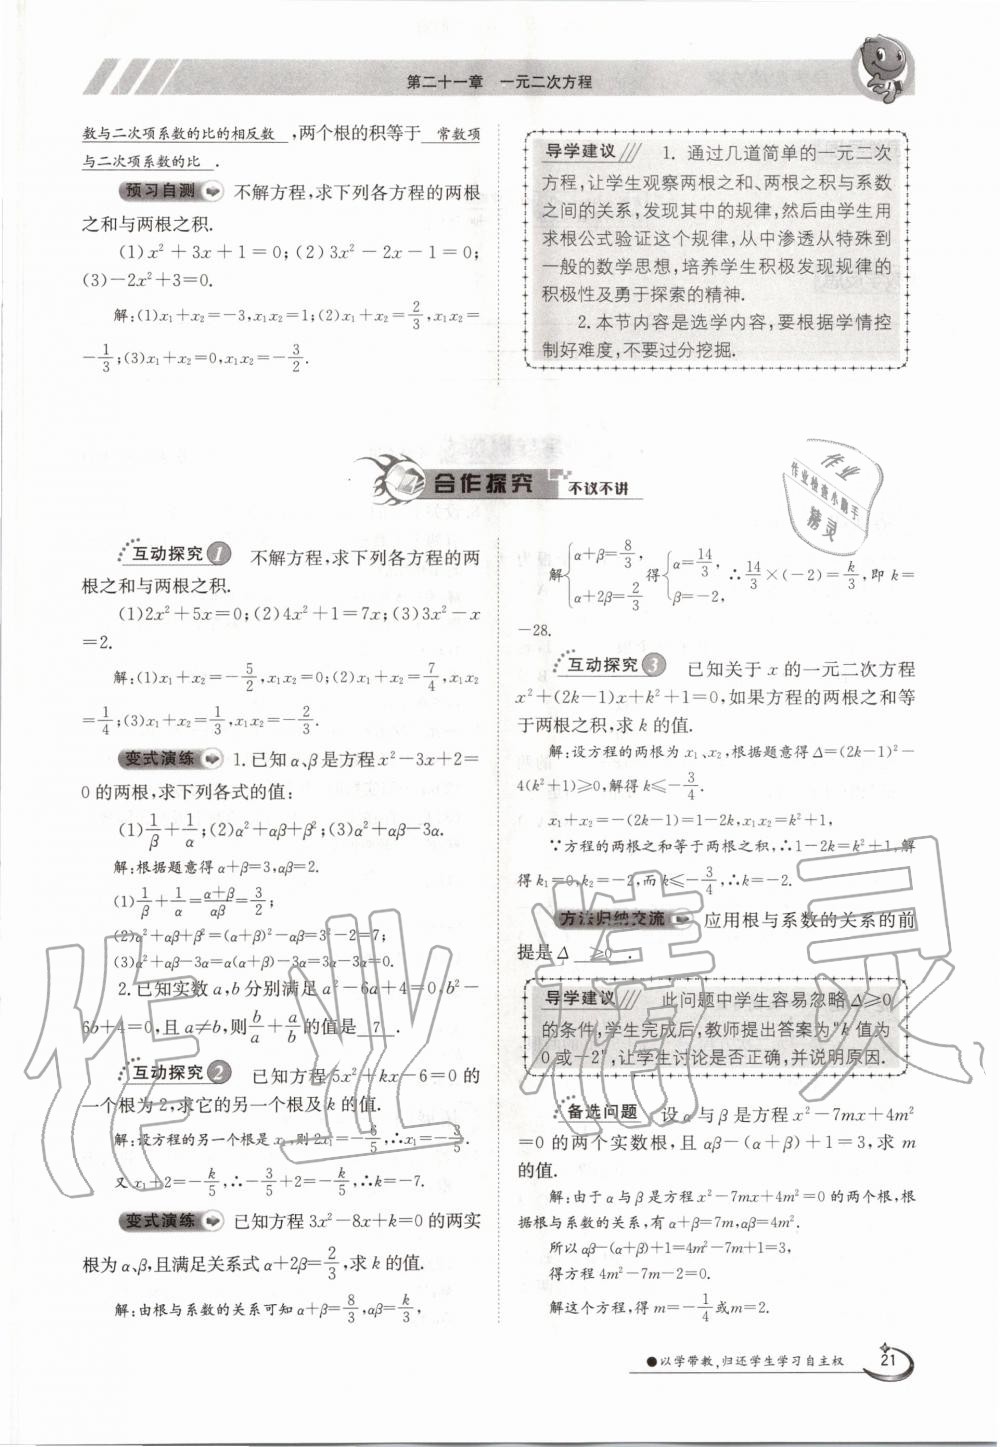 第二十一章　一元二次方程
数与二次项系数的比的相反数,两个根的积等于 常数项
与二次项系数的比 .
预习自测 不解方程,求下列各方程的两根
之和与两根之积.
(1)x²+3x+1=0;(2)3x²-2x-1=0;
(3)-2x²+3=0.
解:(1)x₁+x₂=-3,x₁x₂=1;(2)x₁+x₂=2/3,x₁x₂=
-1/3;(3)x₁+x₂=0,x₁x₂=-3/2.
导学建议 1. 通过几道简单的一元二次
方程,让学生观察两根之和、两根之积与系数
之间的关系,发现其中的规律,然后由学生用
求根公式验证这个规律,从中渗透从特殊到
一般的数学思想,培养学生积极发现规律的
积极性及勇于探索的精神.
2. 本节内容是选学内容,要根据学情控
制好难度,不要过分挖掘.
合作探究 不议不讲
互动探究1 不解方程,求下列各方程的两
根之和与两根之积.
(1)2x²+5x=0;(2)4x²+1=7x;(3)3x²-x
=2.
解:(1)x₁+x₂=-5/2,x₁x₂=0;(2)x₁+x₂=7/4,x₁x₂
=1/4;(3)x₁+x₂=1/3,x₁x₂=-2/3.
变式演练 1.已知α、β是方程x²-3x+2=
0的两根,求下列各式的值:
(1)1/β+1/α;(2)α²+αβ+β²;(3)α²+αβ-3α.
解:根据题意得α+β=3,αβ=2.
(1)1/β+1/α=(α+β)/αβ=3/2;
(2)α²+αβ+β²=(α+β)²-αβ=3²-2=7;
(3)α²+αβ-3α=α(α+β)-3α=3α-3α=0.
2.已知实数a,b分别满足a²-6a+4=0,b²-
6b+4=0,且a≠b,则b/a+a/b的值是 7 .
互动探究2 已知方程5x²+kx-6=0的
一个根为2,求它的另一个根及k的值.
解:设方程的另一个根是x₁,则2x₁=-6/5,∴x₁=-3/5.
又x₁+2=-k/5,∴-3/5+2=-k/5,∴k=-7.
变式演练 已知方程3x²-8x+k=0的两实
根为α、β,且满足关系式α+2β=2/3,求k的值.
解:由根与系数的关系可知α+β=8/3,αβ=k/3,
解{α+β=8/3, α+2β=2/3 得{α=14/3, β=-2, ∴14/3×(-2)=k/3,即k=
-28.
互动探究3 已知关于x的一元二次方程
x²+(2k-1)x+k²+1=0,如果方程的两根之和等
于两根之积,求k的值.
解:设方程的两根为x₁、x₂,根据题意得Δ=(2k-1)²-
4(k²+1)≥0,解得k≤-3/4.
x₁+x₂=-(2k-1)=1-2k,x₁x₂=k²+1,
∵方程的两根之和等于两根之积,∴1-2k=k²+1,解
得k₁=0,k₂=-2,而k≤-3/4,∴k=-2.
方法归纳交流 应用根与系数的关系的前
提是Δ ≥0 .
导学建议 此问题中学生容易忽略Δ≥0
的条件,学生完成后,教师提出答案为"k值为
0或-2",让学生讨论是否正确,并说明原因.
备选问题 设α与β是方程x²-7mx+4m²
=0的两个实数根,且αβ-(α+β)+1=3,求m
的值.
解:由于α与β是方程x²-7mx+4m²=0的两个根,根
据根与系数的关系,有α+β=7m,αβ=4m².
所以αβ-(α+β)+1=4m²-7m+1=3,
得方程4m²-7m-2=0.
解这个方程,得m=-1/4或m=2.
●以学带教,归还学生学习自主权
21
作业
作业检查小助手
精灵
作业精灵